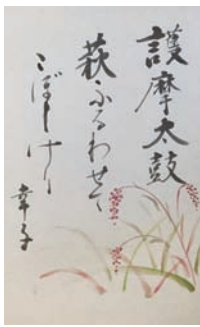 護摩太鼓
萩ふるわせて
こぼしけり
幸子